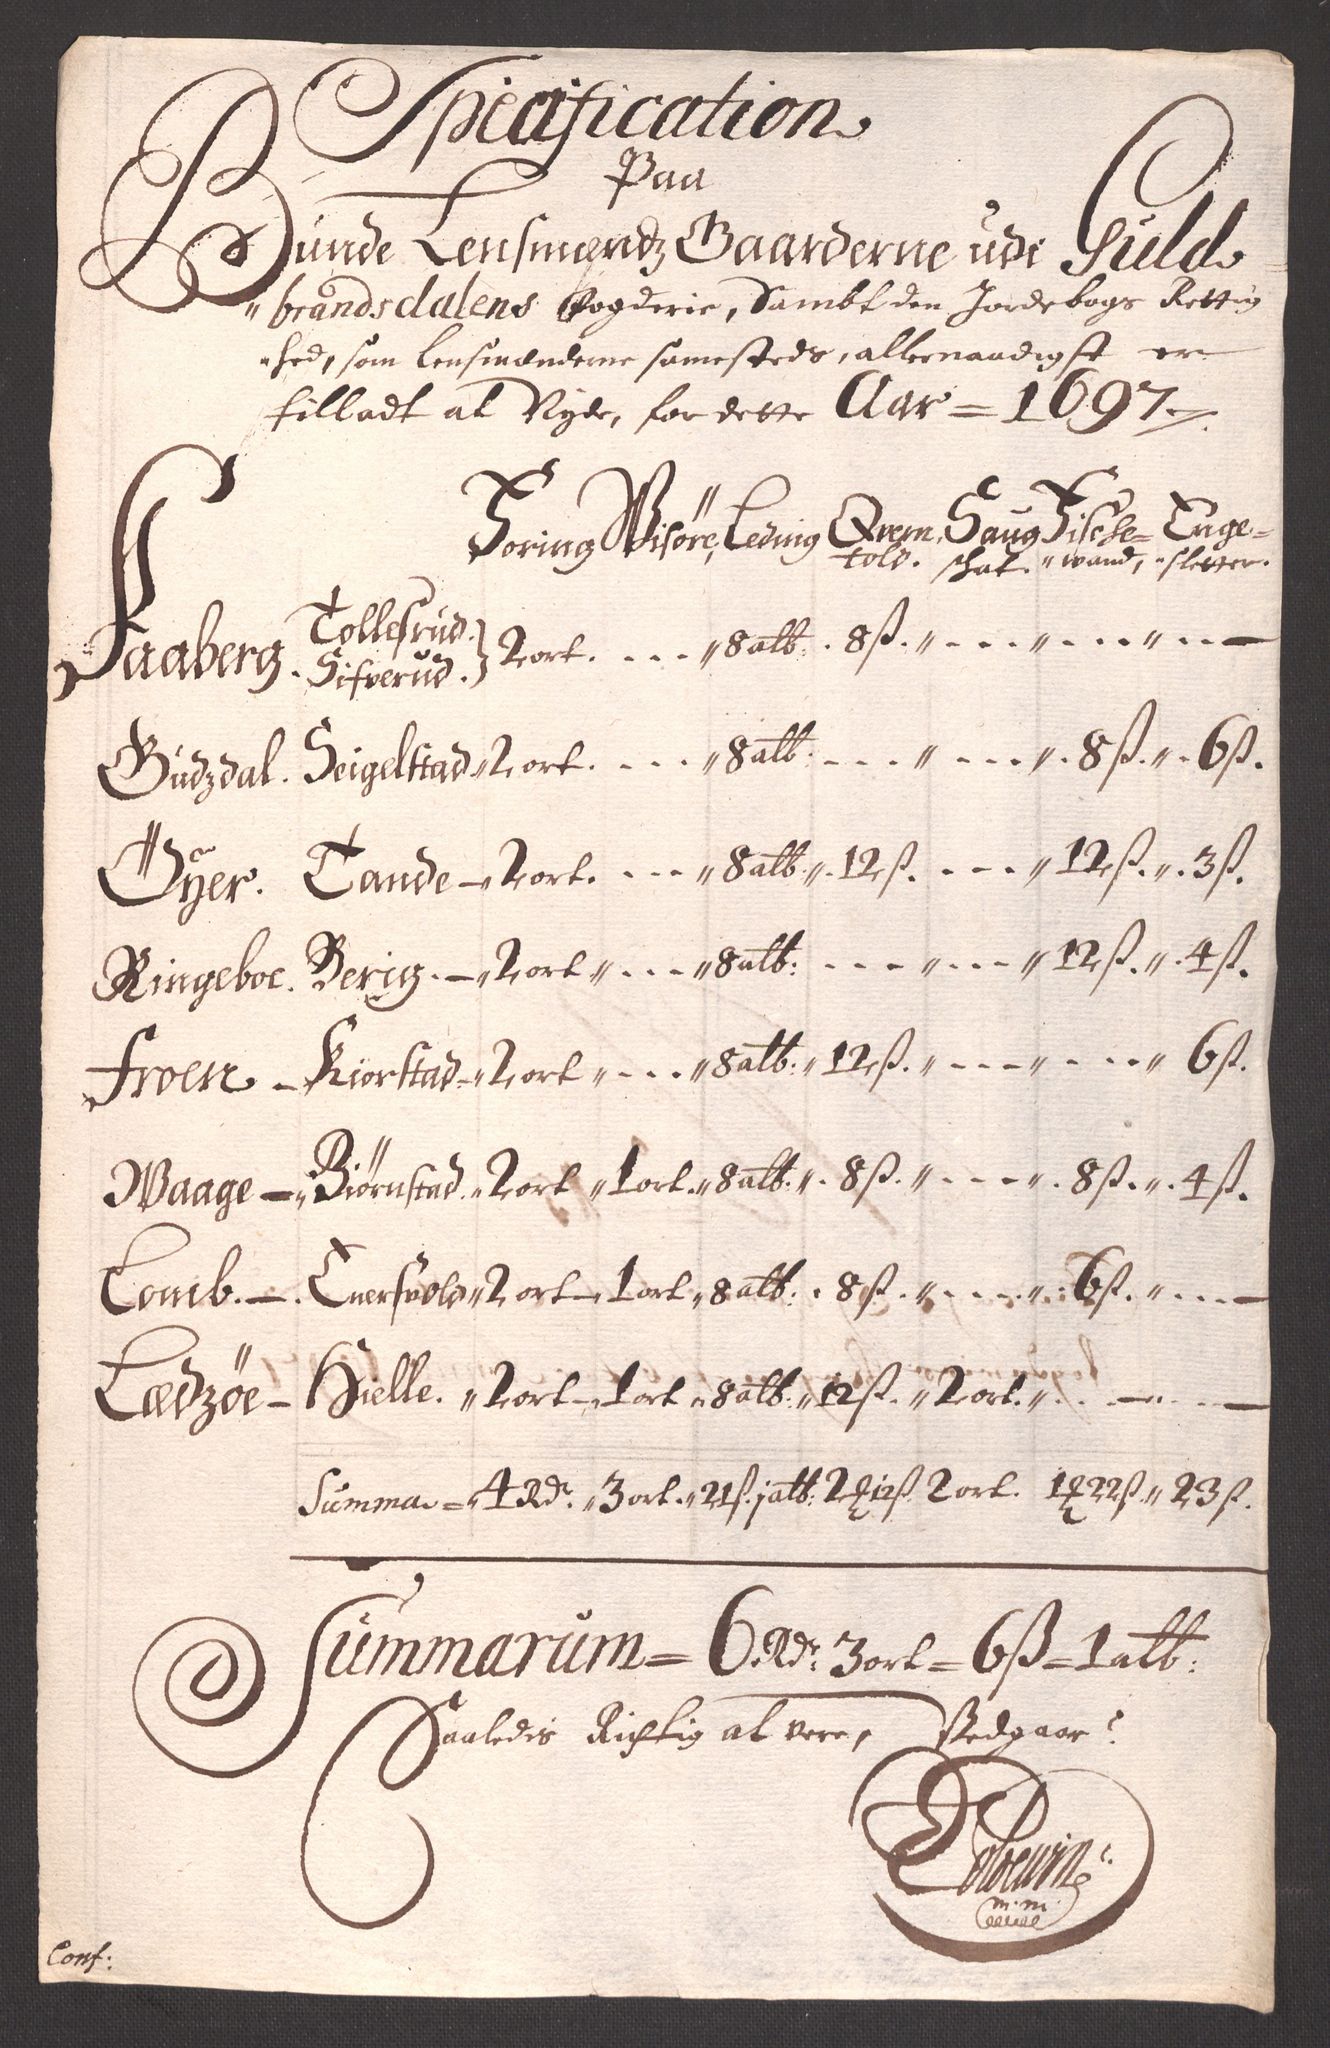 Specification
Paa
Bunde Lensmændz Gaarderne udi Guld
"brandsdalens Fogderie, Sambt den Jordebogs Rettig
"hed, som Lensmænderne samesteds, allernaadigst er
tilladt at Nyde, for dette Aar = 1697.
Foring Wisöre, Leding Qvern told. Saug schat. Fische= "wand, Enge= "sletter.
Faaberg. Tollesrud. Sifverud. } 2 ort. - - - " 8 alb. 8 ß. " - - - " - - - " - -
Gudzdal. Seigelstad " 2 ort. - - - " 8 alb: - - - " - - - " 8 ß. " 6 ß.
Öyer. Tande - " 2 ort. - - - " 8 alb: " 12 ß. - - - " 12 ß. " 3 ß.
Ringeboe. Berig. - " 2 ort " - - - " 8 alb: - - - " - - - " 12 ß. " 4 ß.
Froen - Kiorstad - " 2 ort " - - - " 8 alb: " 12 ß. " - - - " - - - " 6 ß.
Waage - " Biörnstad. " 2 ort " 1 ort. " 8 alb. " 8 ß. " - - - " 8 ß. " 4 ß.
Lomb. - Enersvold " 2 ort - 1 ort " 8 alb: 8 ß. " - - - " 6 ß. " - - -
Lædzöe - Hielle. " 2 ort - 1 ort " 8 alb: " 12 ß. " 2 ort. " - - - - -
Summa = " 4 Rdr. " 3 ort. " 21 ß. j alb: 2 ℥ 12 ß. 2 ort. 1 ℥ 22 ß. " 23 ß.
Summarum = 6 Rdr: 3 ort = 6 ß = 1 alb:
Saaledis Richtig at vere, Stedgaar?
m. m.
Conf: